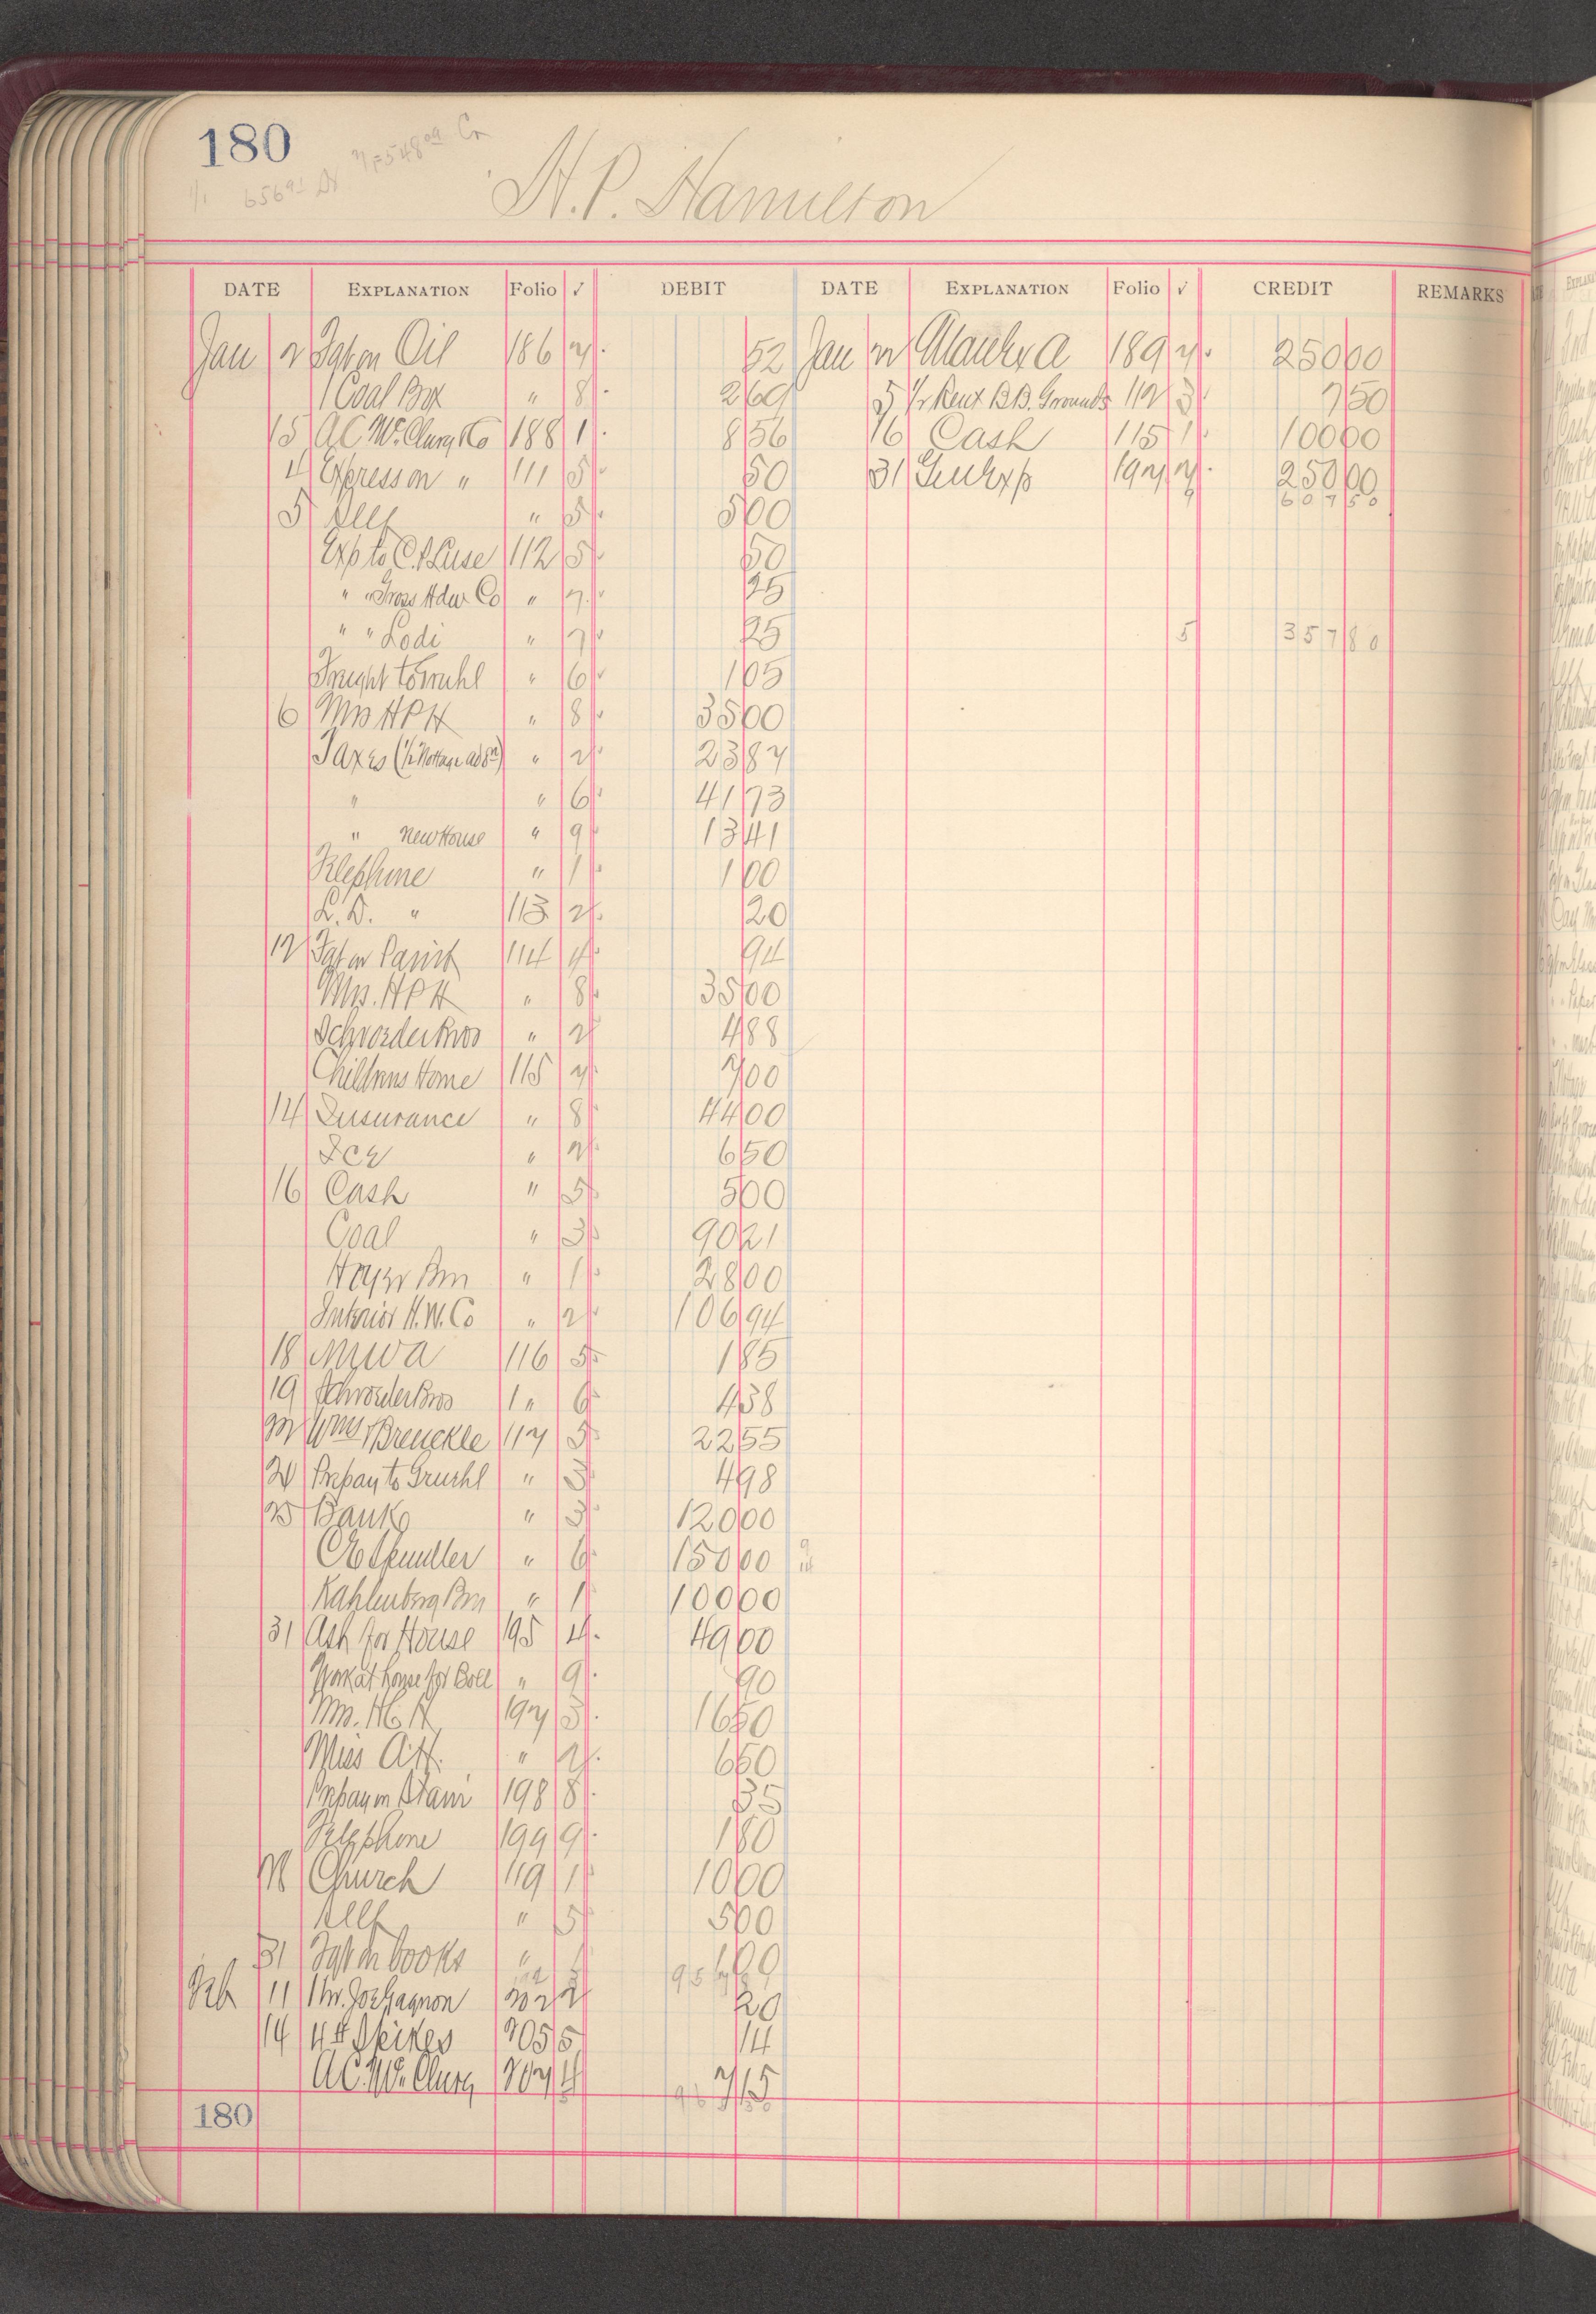 180
1/1 656 91 Dr 548 09 Cr
H. P. Hamilton
DATE EXPLANATION Folio √ DEBIT DATE EXPLANATION Folio √ CREDIT REMARKS
Jan 2 Fgt on Oil 186 7 52 Jan 189 7 250 00
1 Coal Box " 8 2 69 5 1/2 Rent B.B. Grounds 112 3 7 50
15 A C McClurg & Co 188 1 8 56 16 Cash 115 1 100 00
4 Express on " 111 5 50 31 Genl Exp 197 7 250 00
607 50
5 Self " 5 5 00
Exp to C. House 112 5 50
" " Gross Hdw Co " 7 25
" " Lodi " 7 25 5 357 80
Freight to Gruhl " 6 1 05
6 Mrs HPH " 8 35 00
Taxes " 2 23 87
" " 6 41 73
" New House " 9 13 41
Telephone " 1 1 00
L. D. " 113 2 20
12 Fgt on Paint 114 4 94
Mrs. HPH " 8 35 00
Schroeder Bros " 2 4 88
Childrens Home 115 7 7 00
14 Insurance " 8 44 00
Ice " 2 6 50
16 Cash " 5 5 00
Coal " 3 90 21
" 1 28 00
Interior H. W. Co " 2 106 94
18 MWA 116 5 1 85
19 Schroeder Bros 1 " 6 4 38
22 Wms 117 5 22 55
24 Prepay to Gruhl " 3 4 98
25 Bank " 3 120 00
" 6 150 00
Kahlenberg Bros " 1 100 00
31 Ash for House 195 4 49 00
Work at house for Coll " 9 90
Mrs. H 197 3 16 50
Miss A.H. " 2 6 50
Prepay on Stain 198 8 35
Telephone 199 9 1 80
28 Church 119 1 10 00
Self " 5 5 00
31 Fgt on books "
Feb 11 1 hr. Joe Gagnon 202 20
14 4# Spikes 205 5 14
A C McClurg 207 4 7 15
180